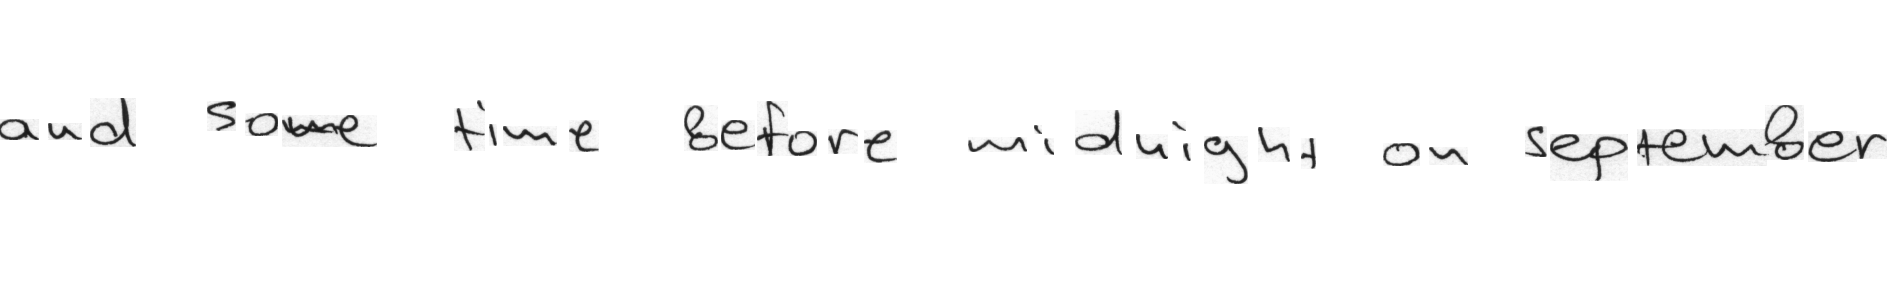 and some time before midnight on september